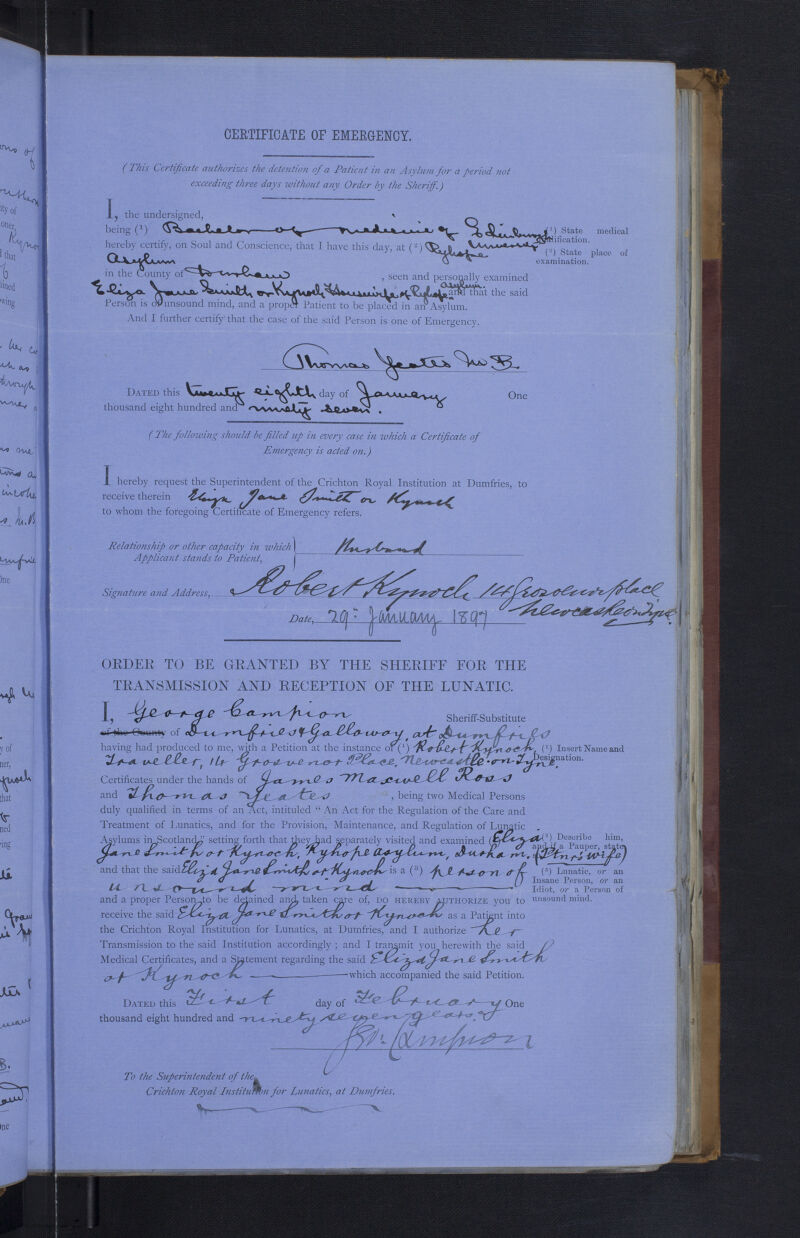 CERTIFICATE OF EMERGENCY.
(This Certificate authorizes the detention of a Patient in an Asylum for a period not
exceeding three days without any Order by the Sheriff.)
I, the undersigned,
being (¹) Bachelor of medicine of Edinburgh University
(¹) State medical
qualification.
hereby certify, on Soul and Conscience, that I have this day, at (²) Ryhope
Asylum
(²) State place of
examination.
in the County of Durham, seen and personally examined
Eliza Jane Smith or Kynoch Housewife of Ryhope Asylum. and that the said
Person is of unsound mind, and a proper Patient to be placed in an Asylum.
And I further certify that the case of the said Person is one of Emergency.
Thomas Yeates M.B.
DATED this twenty eighth day of January One
thousand eight hundred and ninety seven.
(The following should be filled up in every case in which a Certificate of
Emergency is acted on.)
I hereby request the Superintendent of the Crichton Royal Institution at Dumfries, to
receive therein Eliza Jane Smith or Kynoch
to whom the foregoing Certificate of Emergency refers.
Relationship or other capacity in which
Applicant stands to Patient,
Husband
Signature and Address, Robert Kynoch 14 Grosvenor place
Newcastle on Tyne.
Date, 29th January 1897
ORDER TO BE GRANTED BY THE SHERIFF FOR THE
TRANSMISSION AND RECEPTION OF THE LUNATIC.
I, George Campion Sheriff-Substitute
of the County of Dumfries & Galloway, at Dumfries
having had produced to me, with a Petition at the instance of (¹) Robert Kynoch,
(¹) Insert Name and
Designation.
Traveller, 14 Grosvenor Place, Newcastle-on-Tyne,
Certificates under the hands of James Maxwell Ross
and Thomas Yeates, being two Medical Persons
duly qualified in terms of an Act, intituled "An Act for the Regulation of the Care and
Treatment of Lunatics, and for the Provision, Maintenance, and Regulation of Lunatic
Asylums in Scotland," setting forth that they had separately visited and examined (²) Eliza
(²) Describe him,
and if a Pauper, state
Jane Smith or Kynoch, Ryhope Asylum, Durham, (Ptnr's wife)
and that the said Eliza Jane Smith or Kynoch is a (³) person of
(³) Lunatic, or an
Insane Person, or an
Idiot, or a Person of
unsound mind.
unsound mind
and a proper Person to be detained and taken care of, DO HEREBY AUTHORIZE you to
receive the said Eliza Jane Smith or Kynoch as a Patient into
the Crichton Royal Institution for Lunatics, at Dumfries, and I authorize her
Transmission to the said Institution accordingly; and I transmit you herewith the said
Medical Certificates, and a Statement regarding the said Eliza Jane Smith
or Kynoch which accompanied the said Petition.
DATED this First day of February One
thousand eight hundred and ninety seven years.
Geo. Campion
To the Superintendent of the
Crichton Royal Institution for Lunatics, at Dumfries.